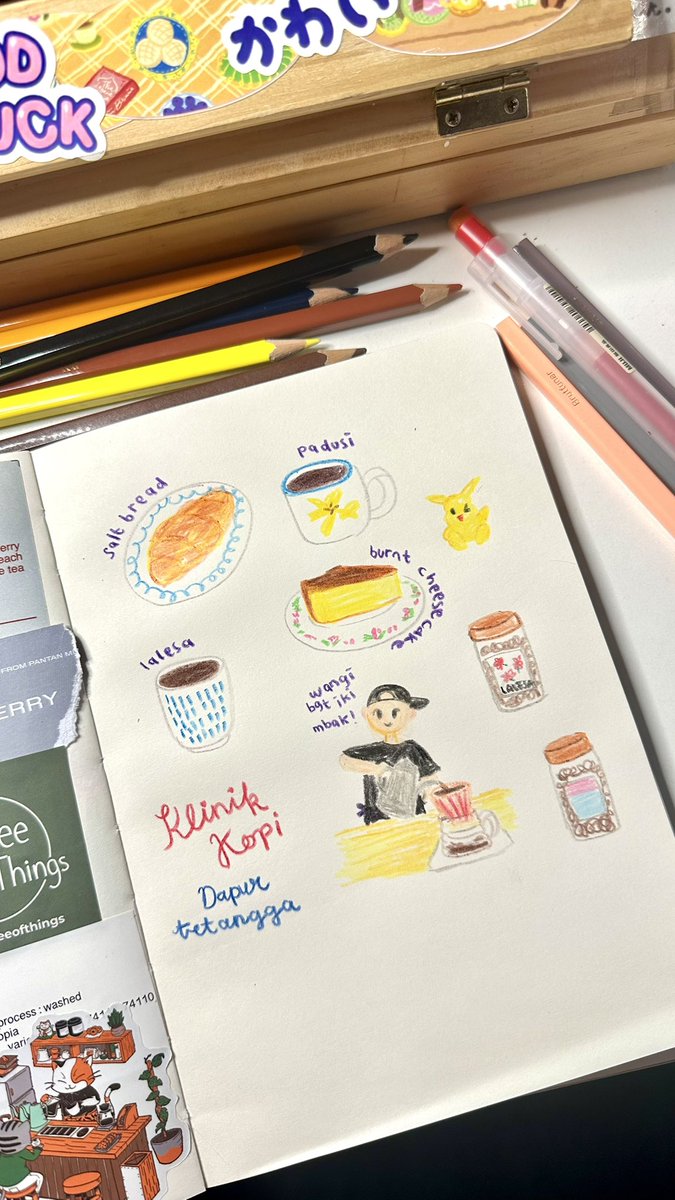 OD
UCK
かわい
Bruttuner
padusi
salt bread
burnt cheese cake
lalesa
LALESA
wangi
bgt iki
mbak!
Klinik
Kopi
Dapur
tetangga
erry
each
e tea
FROM PANTAN M
ERRY
ee
Things
eeofthings
process : washed
74110
opia
vari